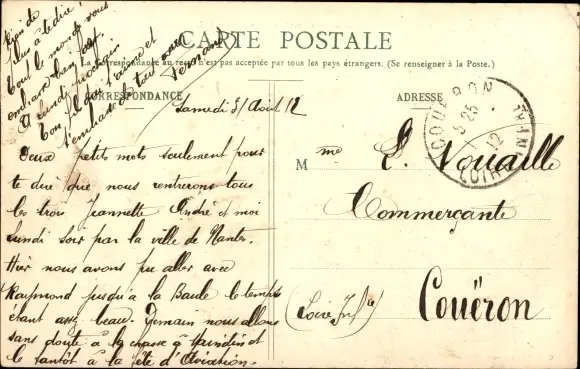 CARTE POSTALE
La Correspondance au recto n'est pas acceptée par tous les pays étrangers. (Se renseigner à la Poste.)
CORRESPONDANCE
ADRESSE
Samedi 31 Août 12
Deux petits mots seulement pour
te dire que nous rentrerons tous
les trois Jeannette André et moi
lundi soir par la ville de Nantes.
Hier nous avons pu aller avec
Raymond jusqu'à la Baule le temps
étant assez beau. Demain nous allons
sans doute à la chasse à et
le tantôt à la fête d'Aviation.
Rien de
plus à te dire,
tout le monde vous
embrasse bien fort
A lundi prochain
Ton fils qui t'aime et
t'embrasse de tout cœur
Fernand
Mme E. Nouaille
Commerçante
Couëron
(Loire Infre)
COUERON
LOIRE
12